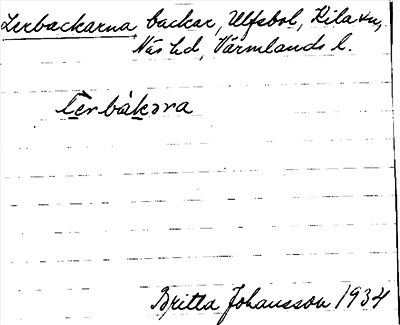 Lerbackarna, backar, Ulfsbol, Kila sn,
Näs hd, Värmlands l.
lèrbàkəra
Britta Johansson 1934